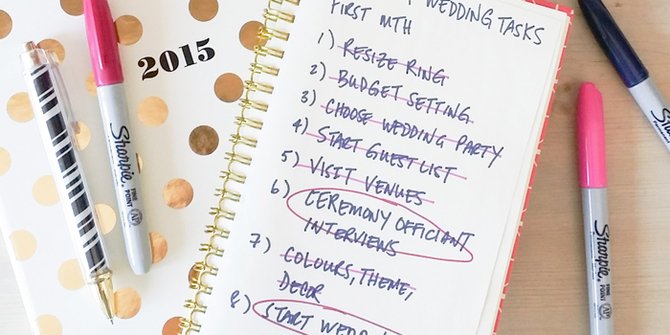 2015
Sharpie
FINE
POINT
AP
WEDDING TASKS
FIRST MTH
1) RESIZE RING
2) BUDGET SETTING
3) CHOOSE WEDDING PARTY
4) START GUEST LIST
5) VISIT VENUES
6) CEREMONY OFFICIANT
INTERVIEWS
7) COLOURS, THEME,
DECOR
8) START
Sharpie
Sharpie
FINE
POINT